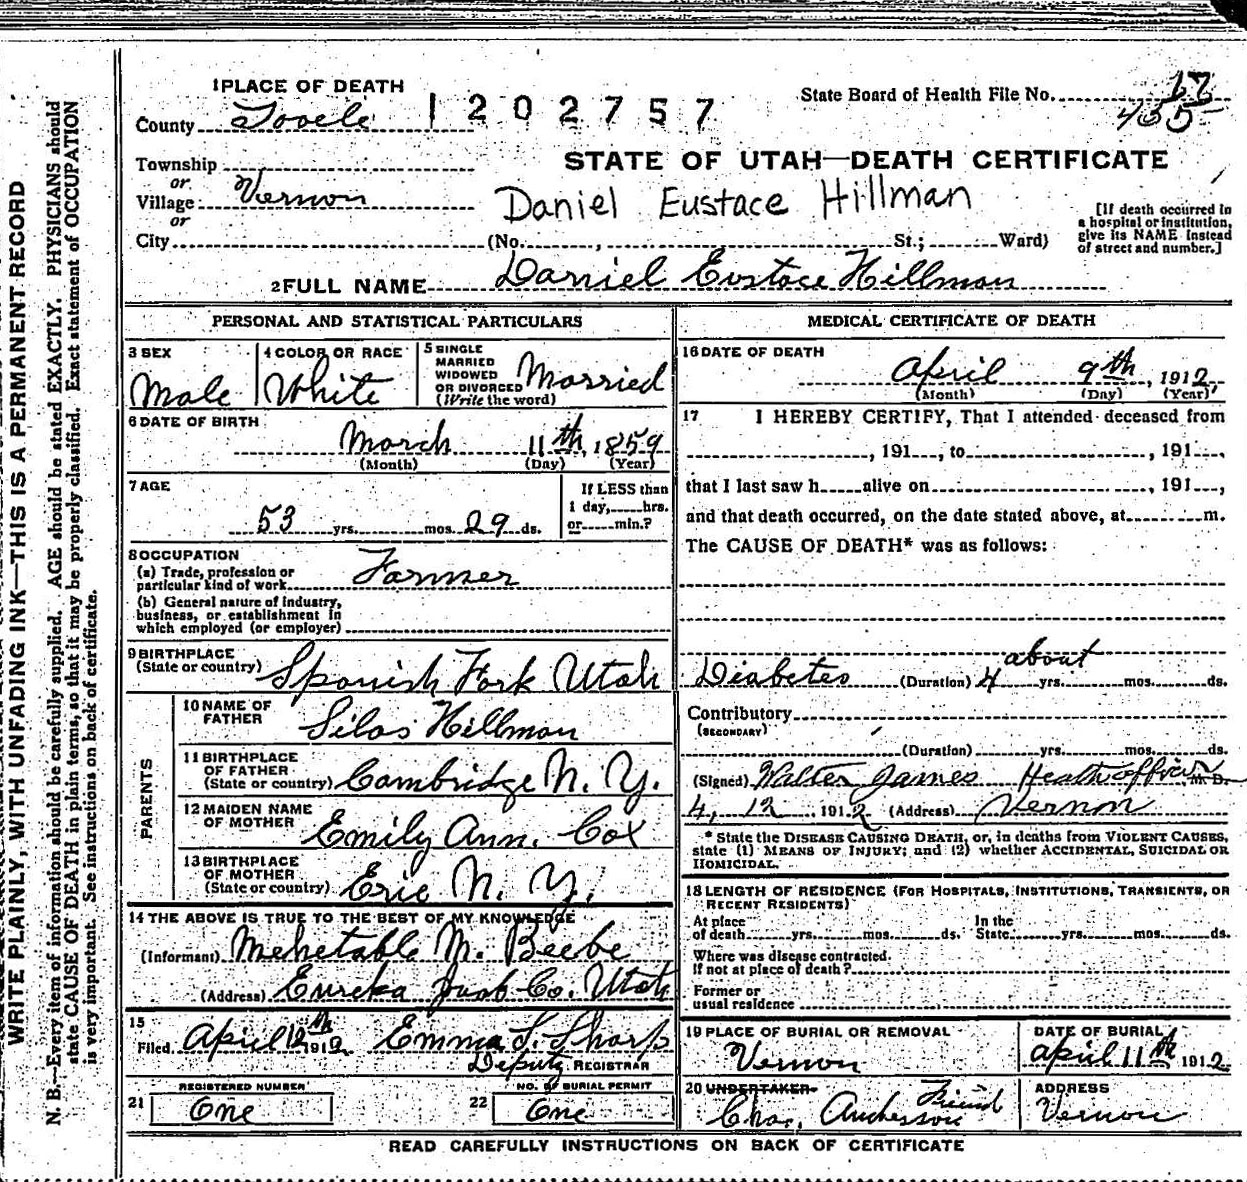 WRITE PLAINLY, WITH UNFADING INK—THIS IS A PERMANENT RECORD
N. B.—Every item of information should be carefully supplied. AGE should be stated EXACTLY. PHYSICIANS should
state CAUSE OF DEATH in plain terms, so that it may be properly classified. Exact statement of OCCUPATION
is very important. See instructions on back of certificate.
1 PLACE OF DEATH
County Tooele
1202757
State Board of Health File No. 17
435
Township
or
Village Vernon
or
City
STATE OF UTAH—DEATH CERTIFICATE
Daniel Eustace Hillman
(No. , St.; Ward)
[If death occurred in
a hospital or institution,
give its NAME instead
of street and number.]
2 FULL NAME Daniel Eustace Hillman
PERSONAL AND STATISTICAL PARTICULARS
3 SEX
Male
4 COLOR OR RACE
White
5 SINGLE
MARRIED
WIDOWED
OR DIVORCED
(Write the word)
Married
6 DATE OF BIRTH
March 11th, 1859
(Month) (Day) (Year)
7 AGE
53 yrs. mos. 29 ds.
If LESS than
1 day, hrs.
or min.?
8 OCCUPATION
(a) Trade, profession or
particular kind of work Farmer
(b) General nature of industry,
business, or establishment in
which employed (or employer)
9 BIRTHPLACE
(State or country) Spanish Fork Utah
PARENTS
10 NAME OF
FATHER
Silas Hillman
11 BIRTHPLACE
OF FATHER
(State or country) Cambridge N. Y.
12 MAIDEN NAME
OF MOTHER
Emily Ann. Cox
13 BIRTHPLACE
OF MOTHER
(State or country) Erie N. Y.
14 THE ABOVE IS TRUE TO THE BEST OF MY KNOWLEDGE
(Informant) Mehetable M. Beebe
(Address) Eureka Juab Co. Utah
15
Filed April 12th 1912 Emma S. Sharp
Deputy REGISTRAR
REGISTERED NUMBER
21 One
NO. OF BURIAL PERMIT
22 One
MEDICAL CERTIFICATE OF DEATH
16 DATE OF DEATH
April 9th, 1912,
(Month) (Day) (Year)
17 I HEREBY CERTIFY, That I attended deceased from
, 191 , to , 191 ,
that I last saw h alive on , 191 ,
and that death occurred, on the date stated above, at m.
The CAUSE OF DEATH* was as follows:
about
Diabetes (Duration) 4 yrs. mos. ds.
Contributory
(SECONDARY)
(Duration) yrs. mos. ds.
(Signed) Walter James Heathofficer M. D.
4, 12, 1912 (Address) Vernon
* State the DISEASE CAUSING DEATH, or, in deaths from VIOLENT CAUSES,
state (1) MEANS OF INJURY; and (2) whether ACCIDENTAL, SUICIDAL OR
HOMICIDAL.
18 LENGTH OF RESIDENCE (FOR HOSPITALS, INSTITUTIONS, TRANSIENTS, OR
RECENT RESIDENTS)
At place
of death yrs. mos. ds.
In the
State yrs. mos. ds.
Where was disease contracted,
if not at place of death?
Former or
usual residence
19 PLACE OF BURIAL OR REMOVAL
Vernon
DATE OF BURIAL
April 11th 1912
20 UNDERTAKER Friend
Chas.
ADDRESS
Vernon
READ CAREFULLY INSTRUCTIONS ON BACK OF CERTIFICATE